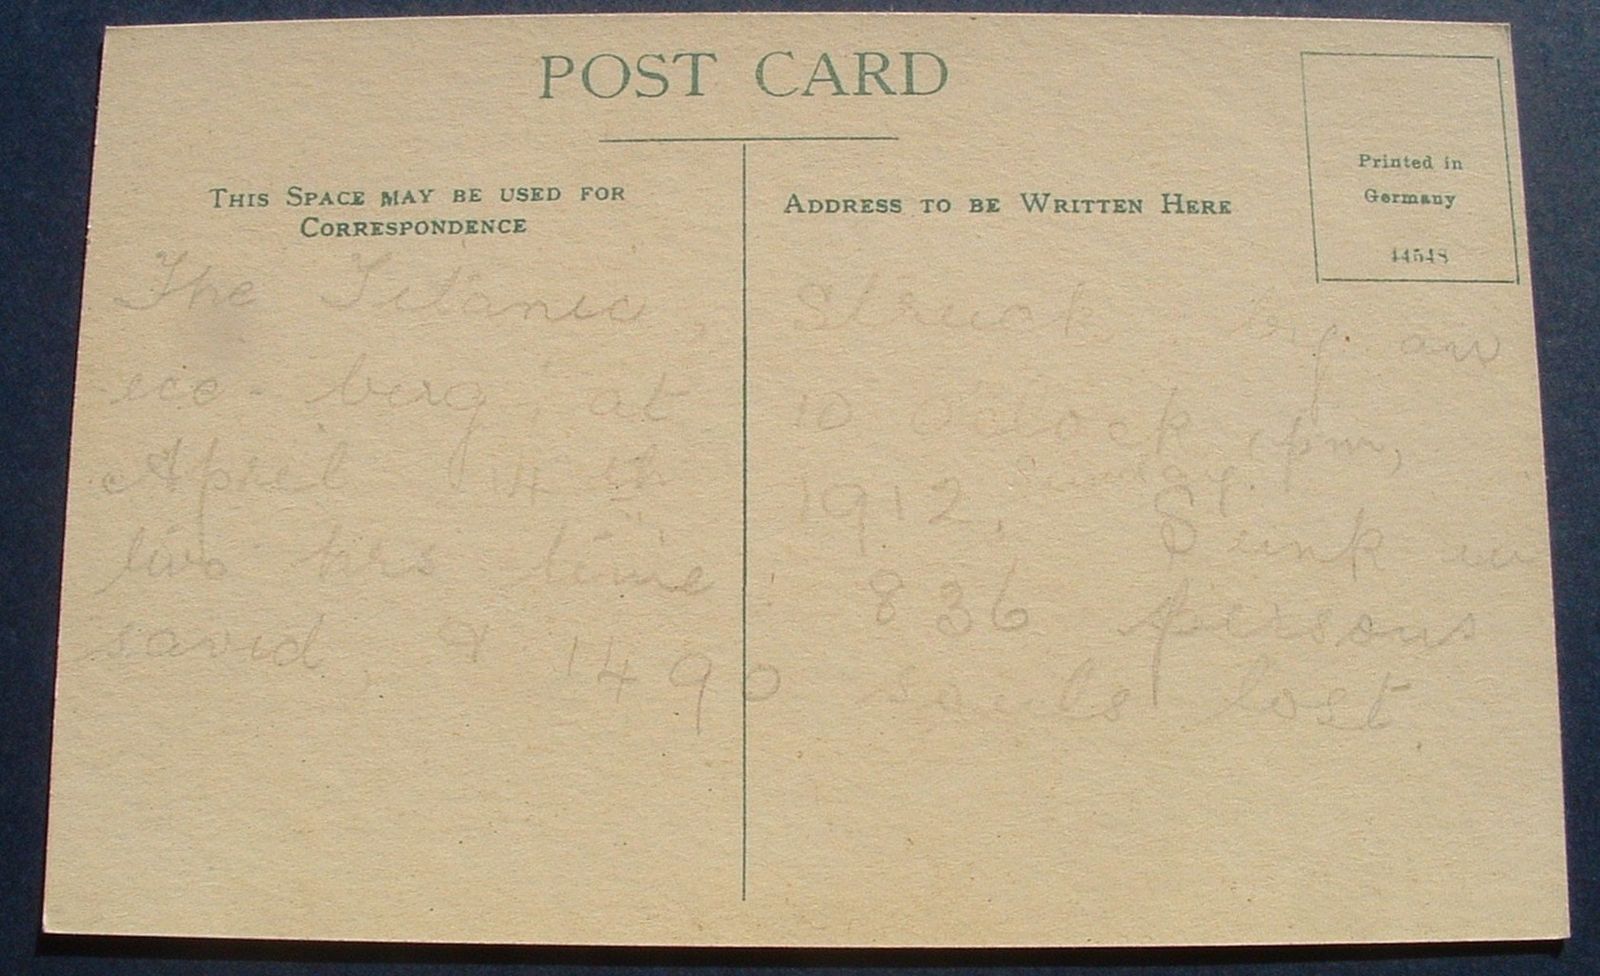 POST CARD
THIS SPACE MAY BE USED FOR
CORRESPONDENCE
ADDRESS TO BE WRITTEN HERE
Printed in
Germany
44548
The Titanic, Struck by an
ice-berg, at 10 O'Clock, pm,
April 14th 1912, Sunday. Sunk in
two hrs time! 836 persons
savid, & 1490 souls lost.